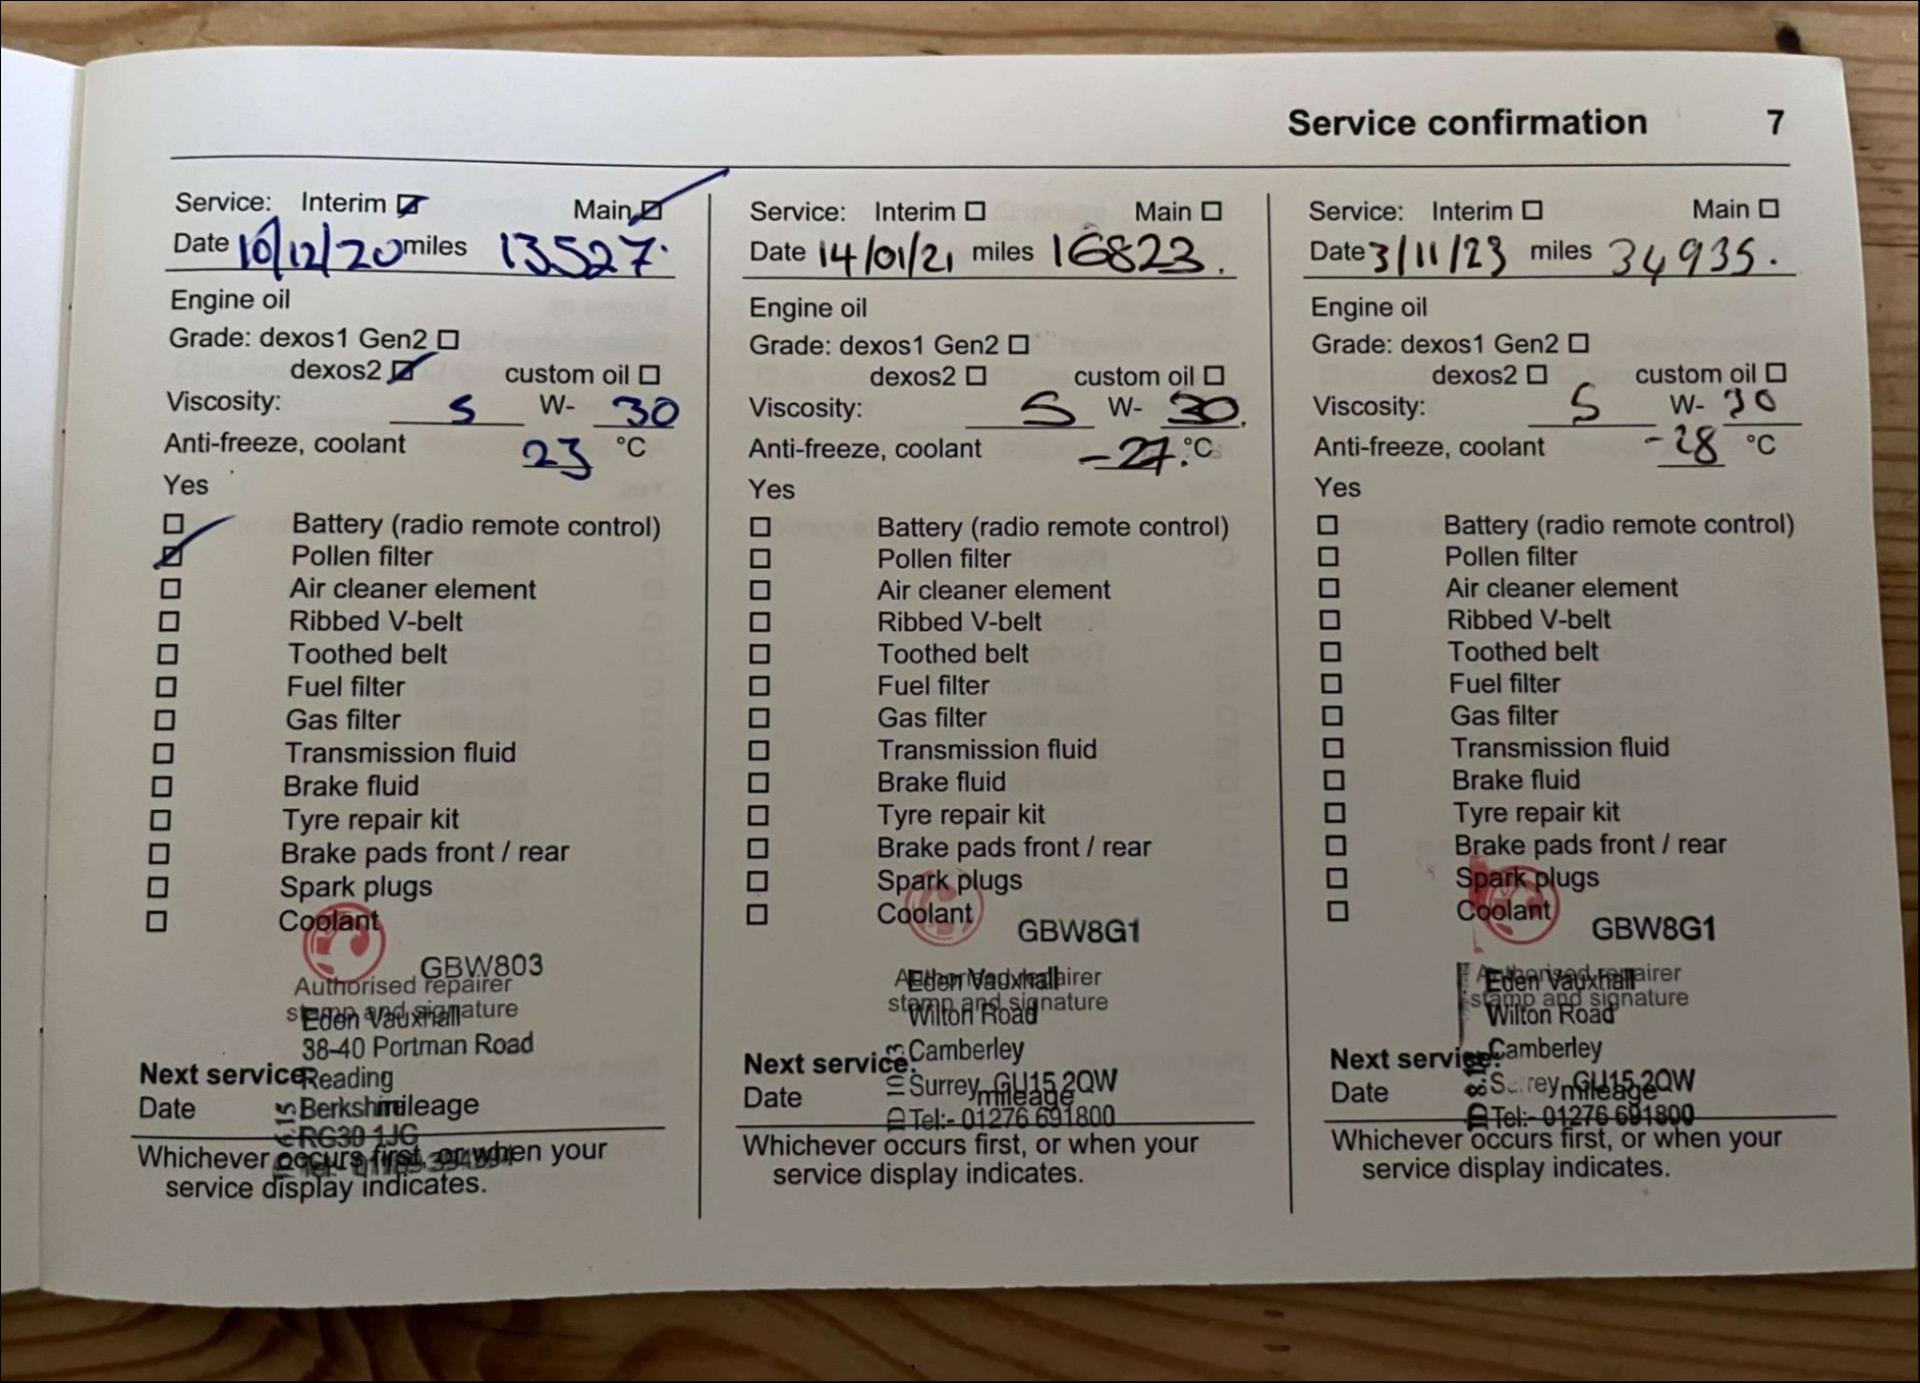 Service confirmation 7
Service: Interim Main
Date 10/12/20 miles 13527.
Engine oil
Grade: dexos1 Gen2
dexos2 custom oil
Viscosity: 5 W- 30
Anti-freeze, coolant 23 °C
Yes
Battery (radio remote control)
Pollen filter
Air cleaner element
Ribbed V-belt
Toothed belt
Fuel filter
Gas filter
Transmission fluid
Brake fluid
Tyre repair kit
Brake pads front / rear
Spark plugs
Coolant
GBW803
Authorised repairer
stamp and signature
Eden Vauxhall
38-40 Portman Road
Next service: Reading
Date Berkshire mileage
RG30 1JG
Whichever occurs first, or when your
service display indicates.
Service: Interim Main
Date 14/01/21 miles 16823.
Engine oil
Grade: dexos1 Gen2
dexos2 custom oil
Viscosity: 5 W- 30.
Anti-freeze, coolant -27. °C
Yes
Battery (radio remote control)
Pollen filter
Air cleaner element
Ribbed V-belt
Toothed belt
Fuel filter
Gas filter
Transmission fluid
Brake fluid
Tyre repair kit
Brake pads front / rear
Spark plugs
Coolant
GBW8G1
Authorised repairer
Eden Vauxhall
stamp and signature
Wilton Road
Next service: Camberley
Date Surrey GU15 2QW
mileage
Tel:- 01276 691800
Whichever occurs first, or when your
service display indicates.
Service: Interim Main
Date 3/11/23 miles 34935.
Engine oil
Grade: dexos1 Gen2
dexos2 custom oil
Viscosity: 5 W- 30
Anti-freeze, coolant -28 °C
Yes
Battery (radio remote control)
Pollen filter
Air cleaner element
Ribbed V-belt
Toothed belt
Fuel filter
Gas filter
Transmission fluid
Brake fluid
Tyre repair kit
Brake pads front / rear
Spark plugs
Coolant
GBW8G1
Authorised repairer
Eden Vauxhall
stamp and signature
Wilton Road
Next service: Camberley
Date Surrey GU15 2QW
mileage
Tel:- 01276 691800
Whichever occurs first, or when your
service display indicates.